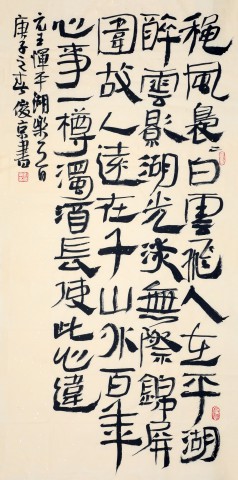 穐風裊々白雲飛人在平湖
醉雲影湖光淡無際錦屏
圍故人遠在千山外百年
心事一樽濁酒長使此心違
元王惲平湖樂乙首
庚子之春俊京書